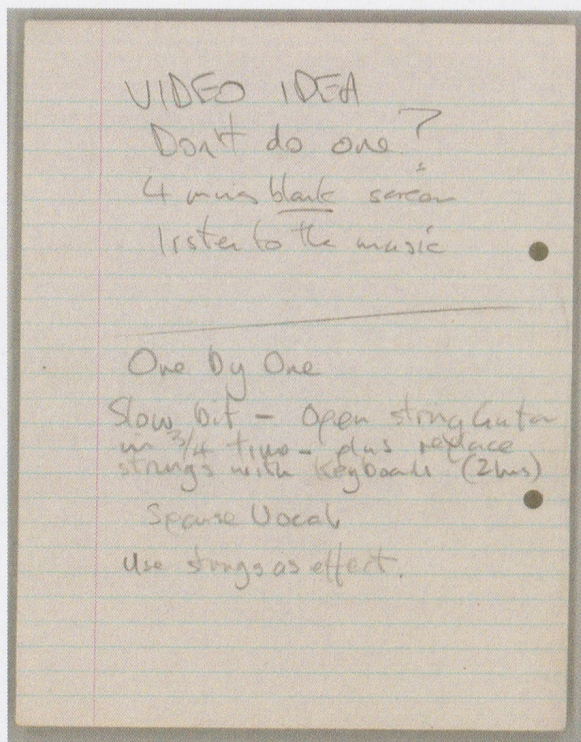 VIDEO IDEA
Don't do one?
4 mins blank screen
listen to the music
One By One
Slow bit - Open string Guitar
in 3/4 time - plus replace
strings with Keyboards (2hns)
Sparse Vocal
Use strings as effect.